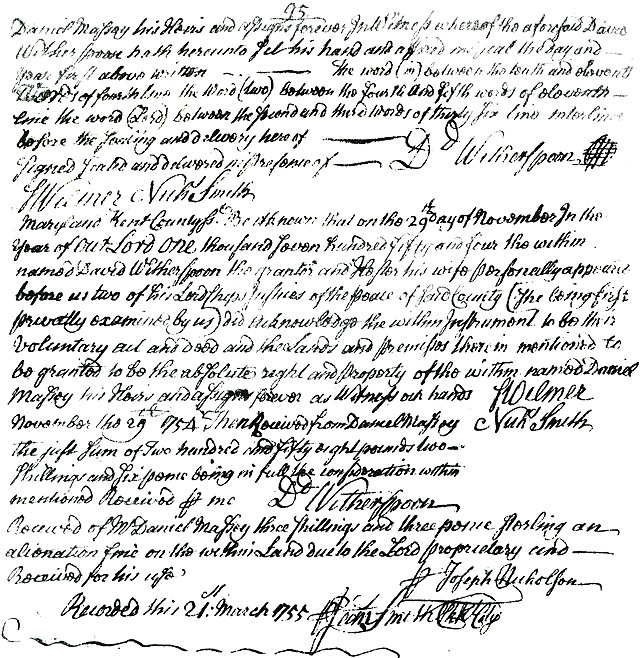 25
Daniel Massey his Heirs and assigns forever In Witness whereof the aforesaid David
Witherspoon hath hereunto set his hand and affixed his seal the day and —
year first above written — — The word (in) between the tenth and eleventh
Words of fourth line the Word (two) between the fourth and fifth words of eleventh —
line the word (Lord) between the second and third words of thirty six line interlined
before the sealing and delivery hereof — Dd Witherspoon
Signed sealed and delivered in presence of —
S Wilmer Nichs Smith
Maryland Kent County Sct. Be it known that on the 29th Day of November In the
year of Our Lord One thousand seven hundred fifty and four the within
named David Witherspoon the grantor and Hester his wife personally appeared
before us two of his Lordships Justices of the peace of said County (She being first
privately examined by us) did acknowledge the within Instrument to be their
Voluntary act and deed and the Lands and premises therein mentioned to
be granted to be the absolute right and property of the within named Daniel
Massey his Heirs and assigns forever as Witness our hands S Wilmer
November the 29th 1754 Then Received from Daniel Massey Nichs Smith
the just sum of Two hundred and fifty eight pounds two —
shillings and six pence being in full the consideration within
mentioned Received p me Dd Witherspoon
Received of Mr Daniel Massey three shillings and three pence sterling an
alienation fine on the within Land due to the Lord proprietary and —
Received for his use
p Joseph Nicholson
Recorded this 21st March 1755 p Jam Smith Clk